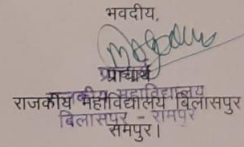 भवदीय,
प्राचार्य
राजकीय महाविद्यालय बिलासपुर
रामपुर।
राजकीय महाविद्यालय
बिलासपुर - रामपुर